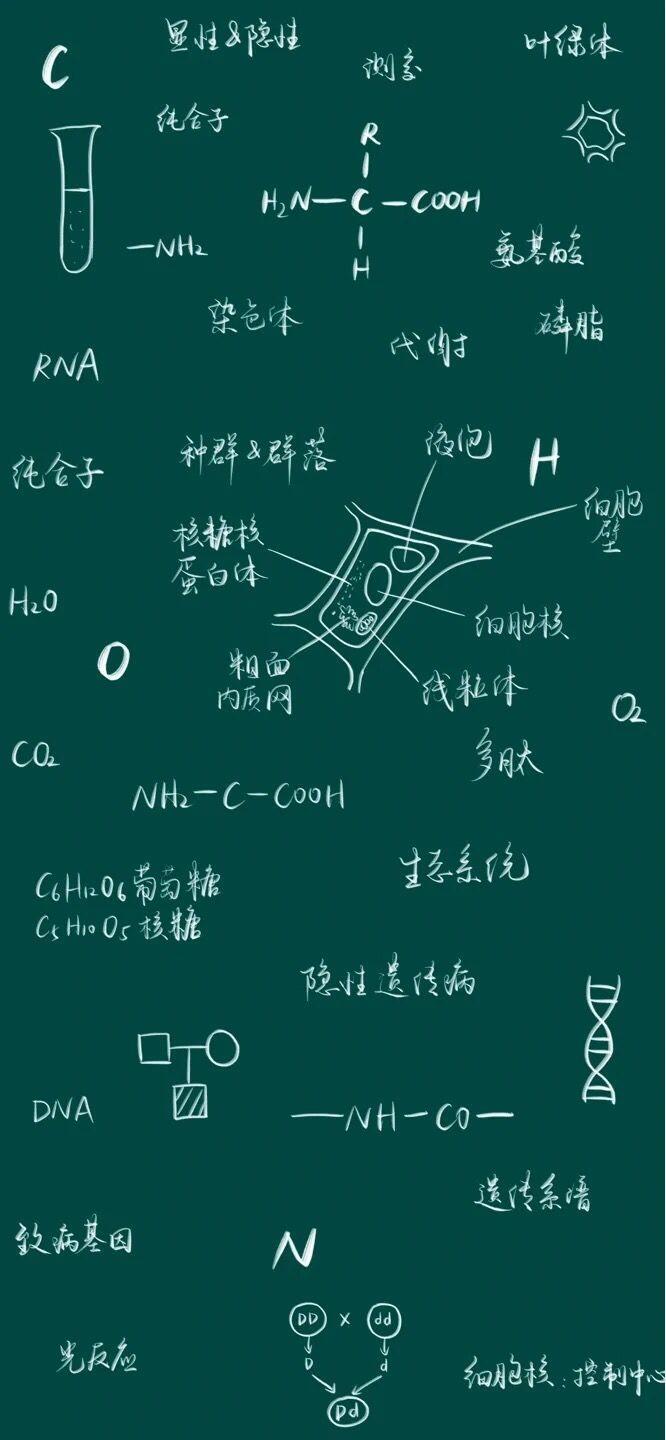 显性&隐性
测交
叶绿体
C
纯合子
R
H₂N—C—COOH
H
—NH₂
氨基酸
染色体
代谢
磷脂
RNA
种群&群落
液泡
H
纯合子
细胞
壁
核糖核
蛋白体
H₂O
细胞核
O
粗面
内质网
线粒体
O₂
CO₂
多肽
NH₂—C—COOH
生态系统
C₆H₁₂O₆葡萄糖
C₅H₁₀O₅核糖
隐性遗传病
DNA
—NH—CO—
遗传系谱
致病基因
N
DD × dd
D d
Dd
光反应
细胞核：控制中心